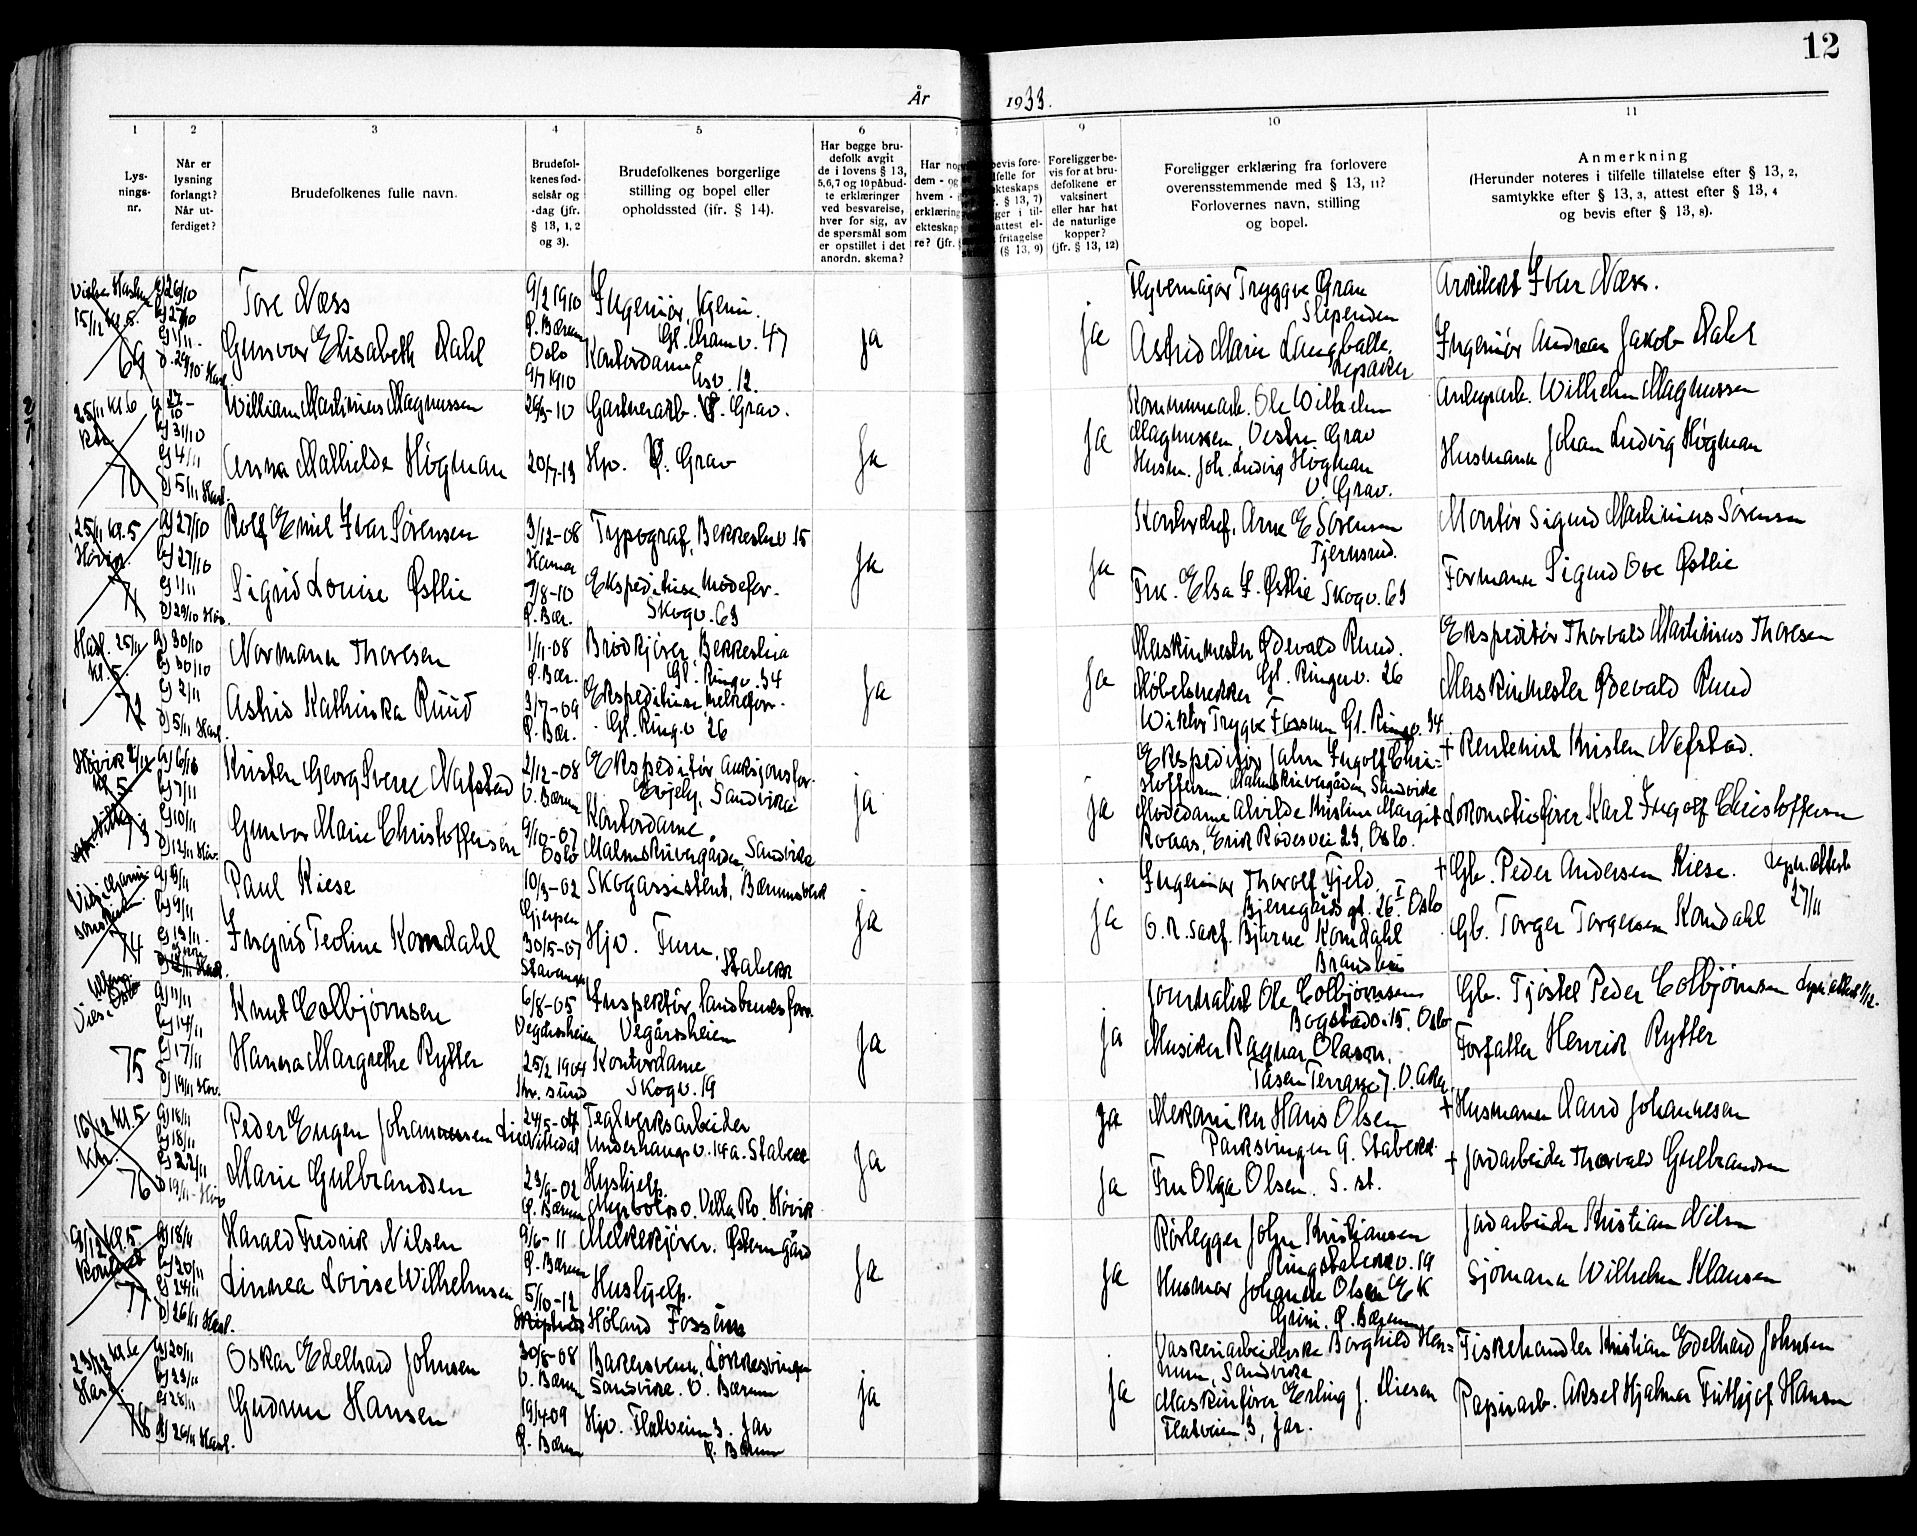 12
År 1933.
1 2 3 4 5 6 7 9 10 11
Lys-
nings-
nr.
Når er
lysning
forlangt?
Når ut-
ferdiget?
Brudefolkenes fulle navn.
Brudefol-
kenes fød-
selsår og
-dag (jfr.
§ 13, 1, 2
og 3).
Brudefolkenes borgerlige
stilling og bopel eller
opholdssted (ifr. § 14).
Har begge bru-
defolk avgit
de i lovens § 13,
5,6,7 og 10 påbud-
te erklæringer
ved besvarelse,
hver for sig, av
de spørsmål som
er opstillet i det
anordn. skema?
Har nog
dem - og
hvem -
erklæring
ekteskap
re? (jfr. §
bevis fore-
ilfelle for
ekteskaps
. § 13, 7)
ger i til-
attest el-
fritagelse
(§ 13, 9)
Foreligger be-
vis for at bru-
defolkene er
vaksinert
eller har hat
de naturlige
kopper?
(jfr. § 13, 12)
Foreligger erklæring fra forlovere
overensstemmende med § 13, 11?
Forlovernes navn, stilling
og bopel.
Anmerkning
(Herunder noteres i tilfelle tillatelse efter § 13, 2,
samtykke efter § 13, 3, attest efter § 13, 4
og bevis efter § 13, 8).
15/12 kl. 5.
69
a) 26/10
b) 27/10
c) 1/11
d. 29/10 Hasl.
Tore Næss
Gunvor Elisabeth Dahl
9/2 1910
Ø. Bærum
Oslo
9/7 1910
Ingeniør, Kjemi.
Gl. Drammv. 47
Kontordame
12.
ja
ja
Flyvermajor Tryggve Gran
Slependen
Astrid Marie Langballe,
Arkitekt Iver Næss.
Ingeniør Andreas Jakob Dahl
25/11 kl. 6
70
a) 27/10
b) 31/10
c) 4/11
d) 5/11 Hasl.
William Martinius Magnussen
Anna Mathilde Høgman
26/3-10
20/7-13
Gartnerarb. V. Grav.
Hjv. Ø. Grav
Ja
Ja
Kommunearb. Ole Wilhelm
Magnussen, Vestre Grav
Husm. Joh. Ludvig Høgman
V. Grav.
Anleggsarb. Wilhelm Magnussen
Husmann Johan Ludvig Høgman
25/11 kl. 5
Høvik
71
a) 27/10
b) 27/10
c) 1/11
d) 29/10 Høv.
Rolf Emil Ivar Sørensen
Sigrid Louise Østlie
3/12-08
Hamar
7/8-10
Ø. Bær.
Typograf, Bekkestuv 15
Ekspeditrise Motefor.
Skogv. 63
Ja
Ja
Kontorchef, Arne E Sørensen
Tjernsrud.
Frk. Elsa I. Østlie Skogv. 63
Montør Sigurd Martinius Sørensen
Formann Sigurd Ove Østlie
Hasl. 25/11
kl. 5.
72
a) 30/10
b) 30/10
c) 2/11
d) 5/11 Hasl.
Normann Thoresen
Astrid Kathinka Ruud
1/11-08
Ø. Bær.
3/7-09
Ø. Bær.
Brødkjører, Bekkestua
Gl. Ringv. 34
Ekspeditrise Melkefor.
Gl. Ringv 26
Ja
Ja
Maskinmester Edevald Ruud.
Gl. Ringev. 26
Møbelsnekker
Wiktor Trygve Fossum Gl. Ringv. 34
Ekspeditør Thorvald Martinius Thoresen
Maskinmester Edevald Ruud
Høvik 2/12
kl. 5
73
b) 7/11
c) 10/11
d) 12/11 Høv.
Kristen Georg Sverre Nafstad
Gunvor Marie Christoffersen
2/12-08
V. Bærum
9/10-07
Oslo
Ekspeditør, Auksjonsfor.
Sandvika
Kontordame
Malmskrivergården, Sandvika
ja
ja
Ekspeditør John Ingolf Chri-
stoffersen, Malmskrivergården, Sandvika
Motedame Alvilde Kristine Margit
Roaas, Erik Rødesvei 23, Oslo.
+ Rentenist Kristen Nafstad.
Lokomotivfører Karl Ingolf Christoffersen
74
a) 9/11
b) 9/11
c) 13/11
Paul Kiese
Ingrid Teoline Komdahl
10/3-02
Gjerpen
30/5-07
Stavanger
Skogassistent, Bærumsverk
Hjv. Furu,
Stabekk
ja
ja
Ingeniør Thorolf Fjeld,
Bjerregårds gt. 26 I Oslo
O. R. sakf. Bjarne Komdahl
+ Gb. Peder Andersen Kiese. Lysn. attest
27/11
Gb. Torger Torgersen Komdahl
Oslo
75
a) 11/11
b) 14/11
c) 17/11
d) 19/11 Høv.
Knut Colbjørnsen
Hanna Margrethe Rytter
6/8-05
Vegårsheien
25/2 1904
Kr. sund
Inspektør,
Vegårsheien
Kontordame
Skogv. 19
Ja
ja
Journalist Ole Colbjørnsen
Bogstadv. 15, Oslo
Musiker Ragnar Olason,
Tåsen Terrasse 7. V. Aker
Gb. Tjøstel Peder Colbjørnsen
Forfatter Henrik Rytter
16/12 kl. 5
76
a) 18/11
b) 18/11
c) 22/11
d) 19/11 - Høv
Peder Eugen Johannessen Lie
Marie Gulbrandsen
24/5-04
Nittedal
23/9-02
Ø. Bærum
Teglverksarbeider
Underhaugsv. 14a. Stabekk
Hushjelp.
Villa Ro. Høvik
Ja
ja
ja
Mekaniker Hans Olsen
Parksvingen 9. Stabekk
Fru Olga Olsen. S. st.
+ Husmann Rand Johannesen
+ Jordarbeider Thorvald Gulbrandsen
9/12 kl. 5
77
a) 18/11
b) 20/11
c) 24/11
d) 26/11 Hasl.
Harald Fredrik Nilsen
Linnea Lovise Wilhelmsen
9/6-11
Ø. Bærum
5/10-12
Melkekjører. Østerngård
Hushjelp.
Høland Fossum
Ja
ja
Rørlegger John Kristiansen
Ringstabekkv. 19
Husmor Johanna Olsen E K
Grini. Ø. Bærum
Jordarbeider Kristian Nilsen
Sjømann Wilhelm Klausen
23/12 kl. 6
Hasl.
78
a) 20/11
b) 23/11
c) 28/11
d) 26/11 Hasl.
Oskar Edelhard Johnsen
Gudrun Hansen
30/8-08
V. Bærum
19/4 09
Ø. Bærum
Bakersvenn, Løkkesvingen
Sandvika. V. Bærum
Hjv. Flatveien 3. Jar
Ø. Bærum
ja
ja
Vaskeriarbeiderske Borghild Han-
Sandvika
Maskinfører Erling J. Diesen
Flatveien 3, Jar.
Fiskehandler Kristian Edelhard Johnsen
Papirarb. Aksel Hjalmar Frithjof Hansen